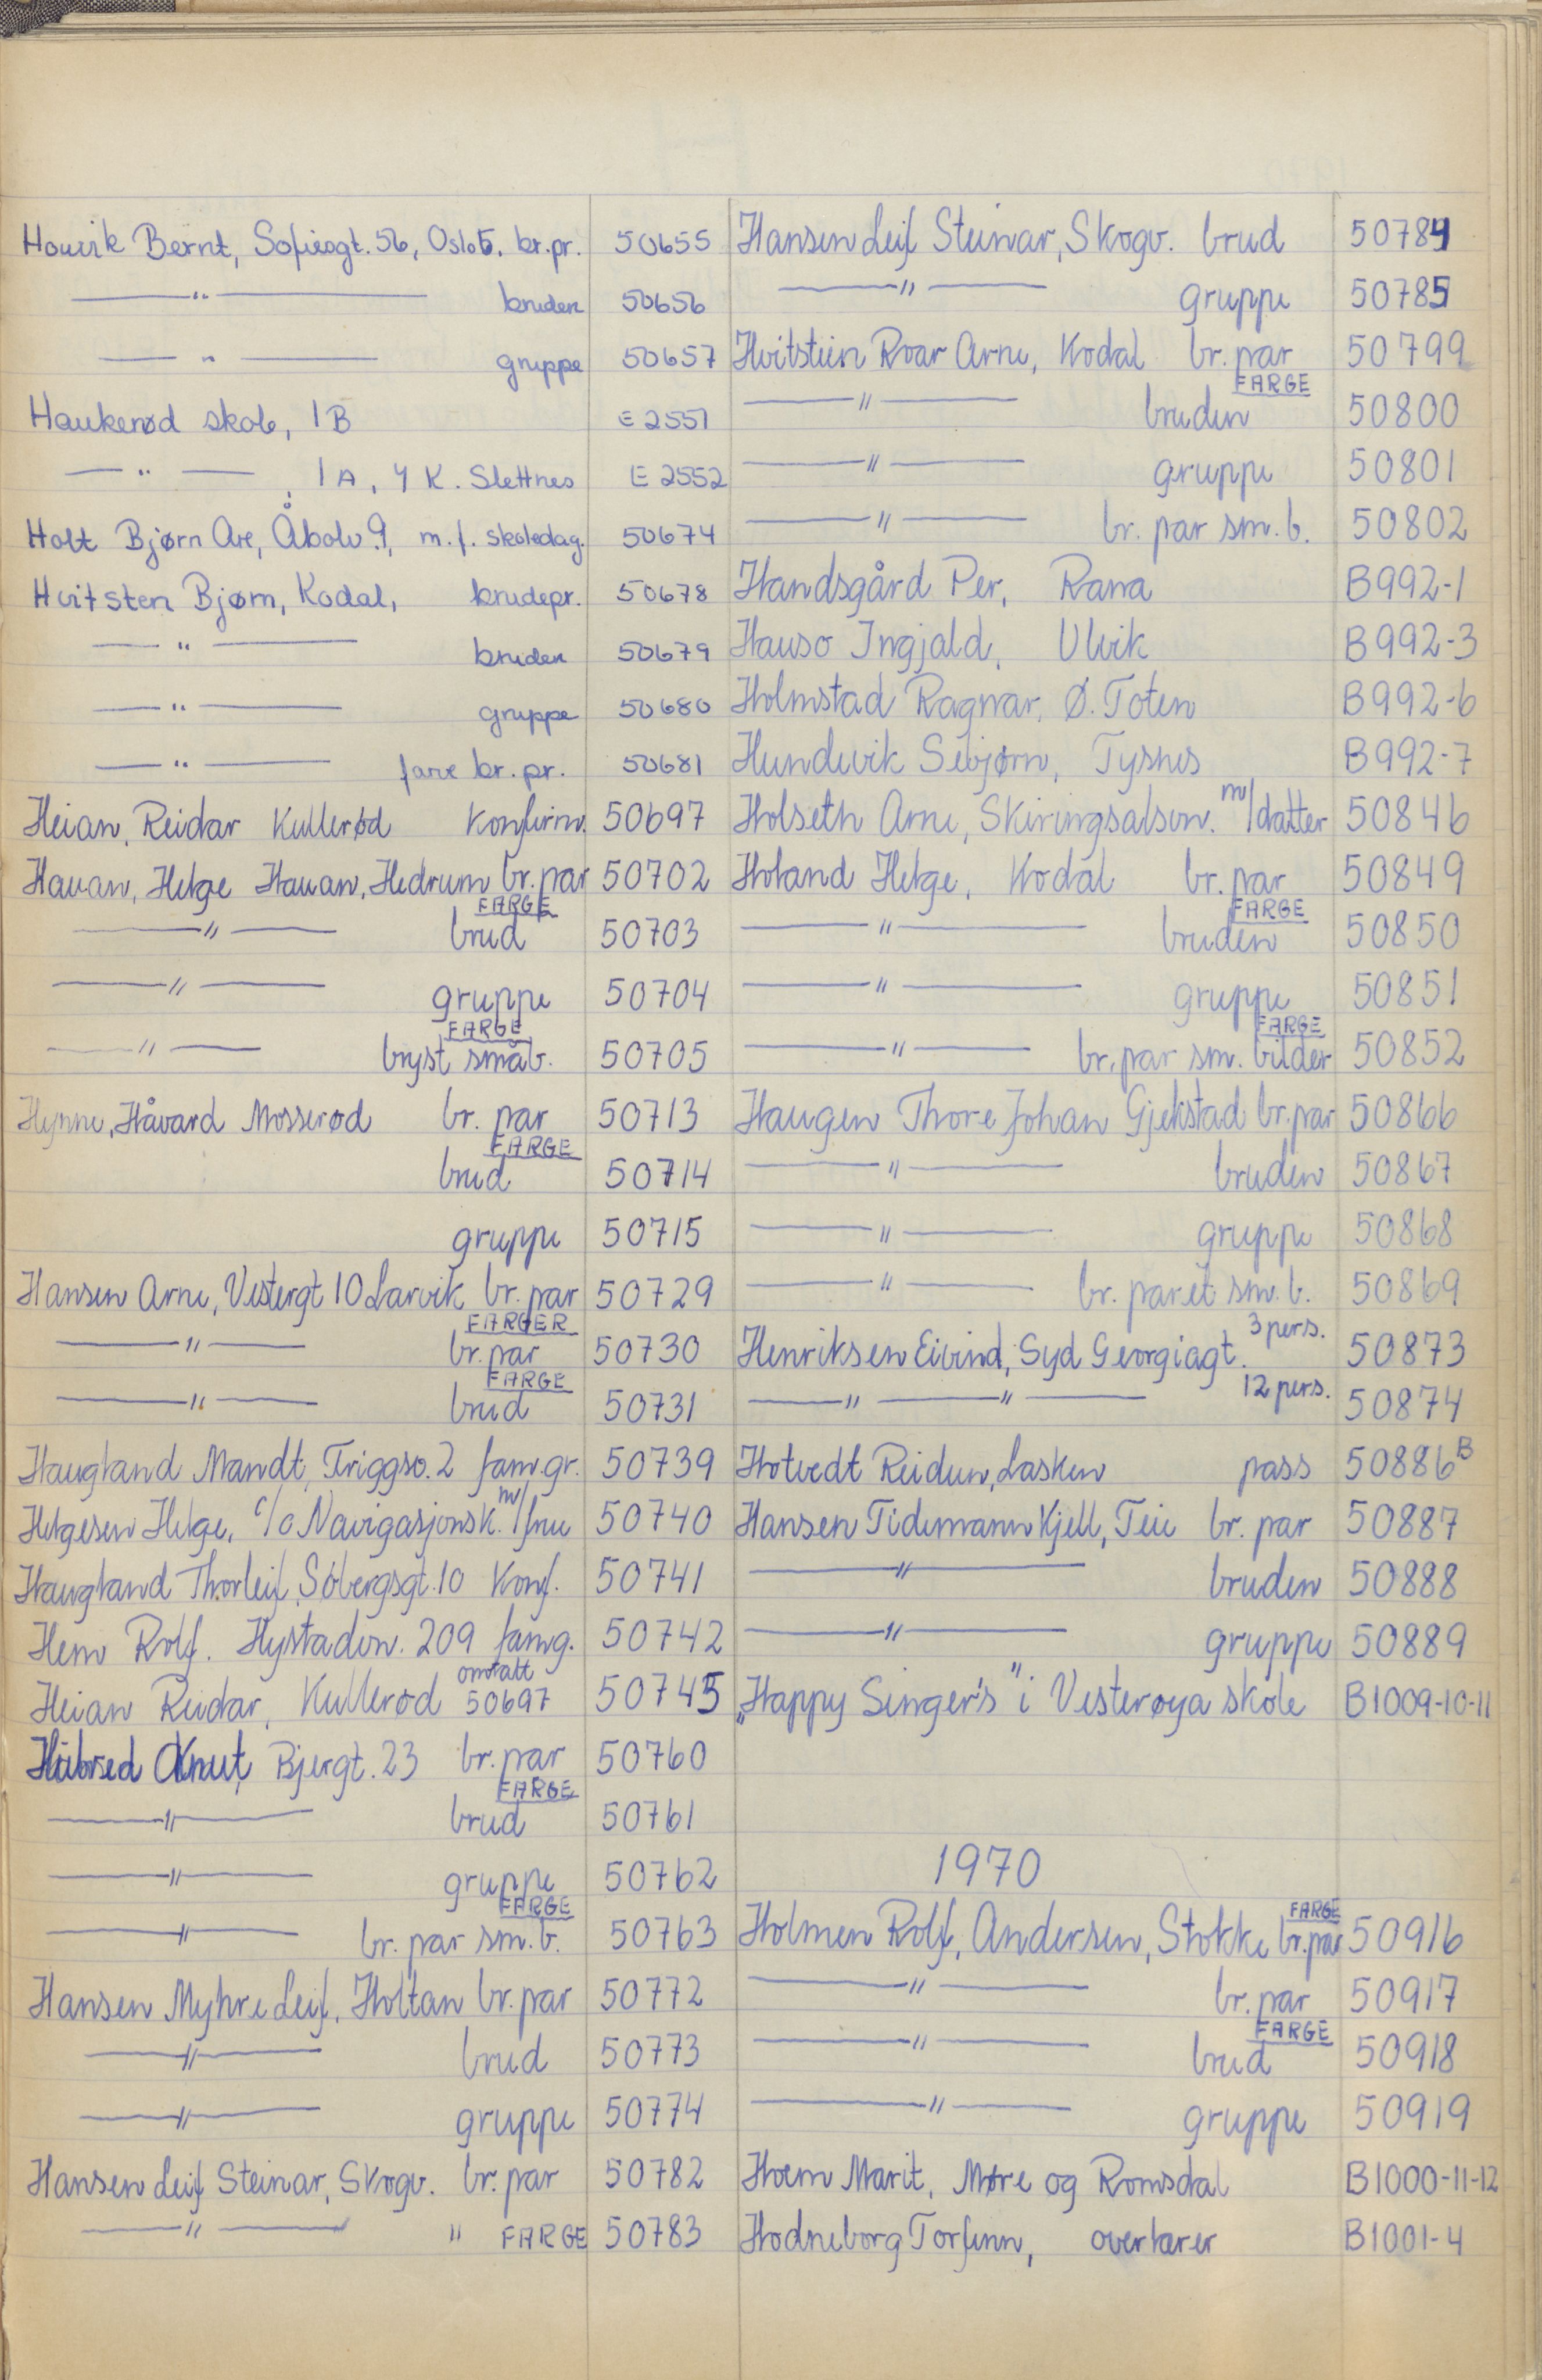 Houvik Bernt, Sofiesgt. 56, Oslo 5. br.pr. 50655
—"— bruden 50656
—"— gruppe 50657
Haukerød skole, 1B E 2551
—"—, 1A, 4 K. Slettnes E 2552
Holt Bjørn Are, Åbolv. 9, m.f. skoledag. 50674
Hvitsten Bjørn, Kodal, brudepr. 50678
—"— bruden 50679
—"— gruppe 50680
—"— farve br.pr. 50681
Heian, Reidar Kullerød Konfirm. 50697
Hauan, Helge Hauan, Hedrum br. par 50702
—"— FARGE brud 50703
—"— gruppe 50704
—"— FARGE bryst småb. 50705
Hynne, Håvard Mosserød br. par 50713
FARGE brud 50714
gruppe 50715
Hansen Arne, Vestergt 10 Larvik br. par 50729
—"— FARGER br. par 50730
—"— FARGE brud 50731
Haugland Mandt, Triggsv. 2 fam.gr. 50739
Helgesen Helge, c/o Navigasjonsk. m/frue 50740
Haugland Thorleif, Sobergsgt. 10 Konf. 50741
Hem Rolf. Hystadvn. 209 famg. 50742
Heian Reidar, Kullerød omtatt 50697 50745
Knut, Bjergt. 23 br. par 50760
—"— FARGE brud 50761
—"— gruppe 50762
—"— FARGE br. par sm. b. 50763
Hansen Myhre Leif, Holtan br. par 50772
—"— brud 50773
—"— gruppe 50774
Hansen Leif Steinar, Skogv. br. par 50782
—"— " FARGE 50783
Hansen Leif Steinar, Skogv. brud 50784
—"— gruppe 50785
Hvitstein Roar Arne, Kodal br. par 50799
—"— FARGE bruden 50800
—"— gruppe 50801
—"— br. par sm. b. 50802
Handsgård Per, Rana B992-1
Hauso Ingjald, Ulvik B992-3
Holmstad Ragnar, Ø. Toten B992-6
Hundevik Sebjørn, Tysnes B992-7
Holseth Arne, Skiringsalsvn. m/datter 50846
Holand Helge, Kodal br. par 50849
—"— FARGE bruden 50850
—"— gruppe 50851
—"— FARGE br. par sm. bilder 50852
Haugen Thore Johan Gjekstad br. par 50866
—"— bruden 50867
—"— gruppe 50868
—"— br. paret sm. b. 50869
Henriksen Eivind, Syd Georgiagt. 3 pers. 50873
—"— —"— 12 pers. 50874
Hotvedt Reidun, Lasken pass 50886 B
Hansen Tidemann Kjell, Teie br. par 50887
—"— bruden 50888
—"— gruppe 50889
„Happy Singer's" i Vesterøya skole B1009-10-11
1970
Holmen Rolf, Andersen, Stokke FARGE br. par 50916
—"— br. par 50917
—"— FARGE brud 50918
—"— gruppe 50919
Hoem Marit, Møre og Romsdal B1000-11-12
Hodneborg Torfinn, overlærer B1001-4